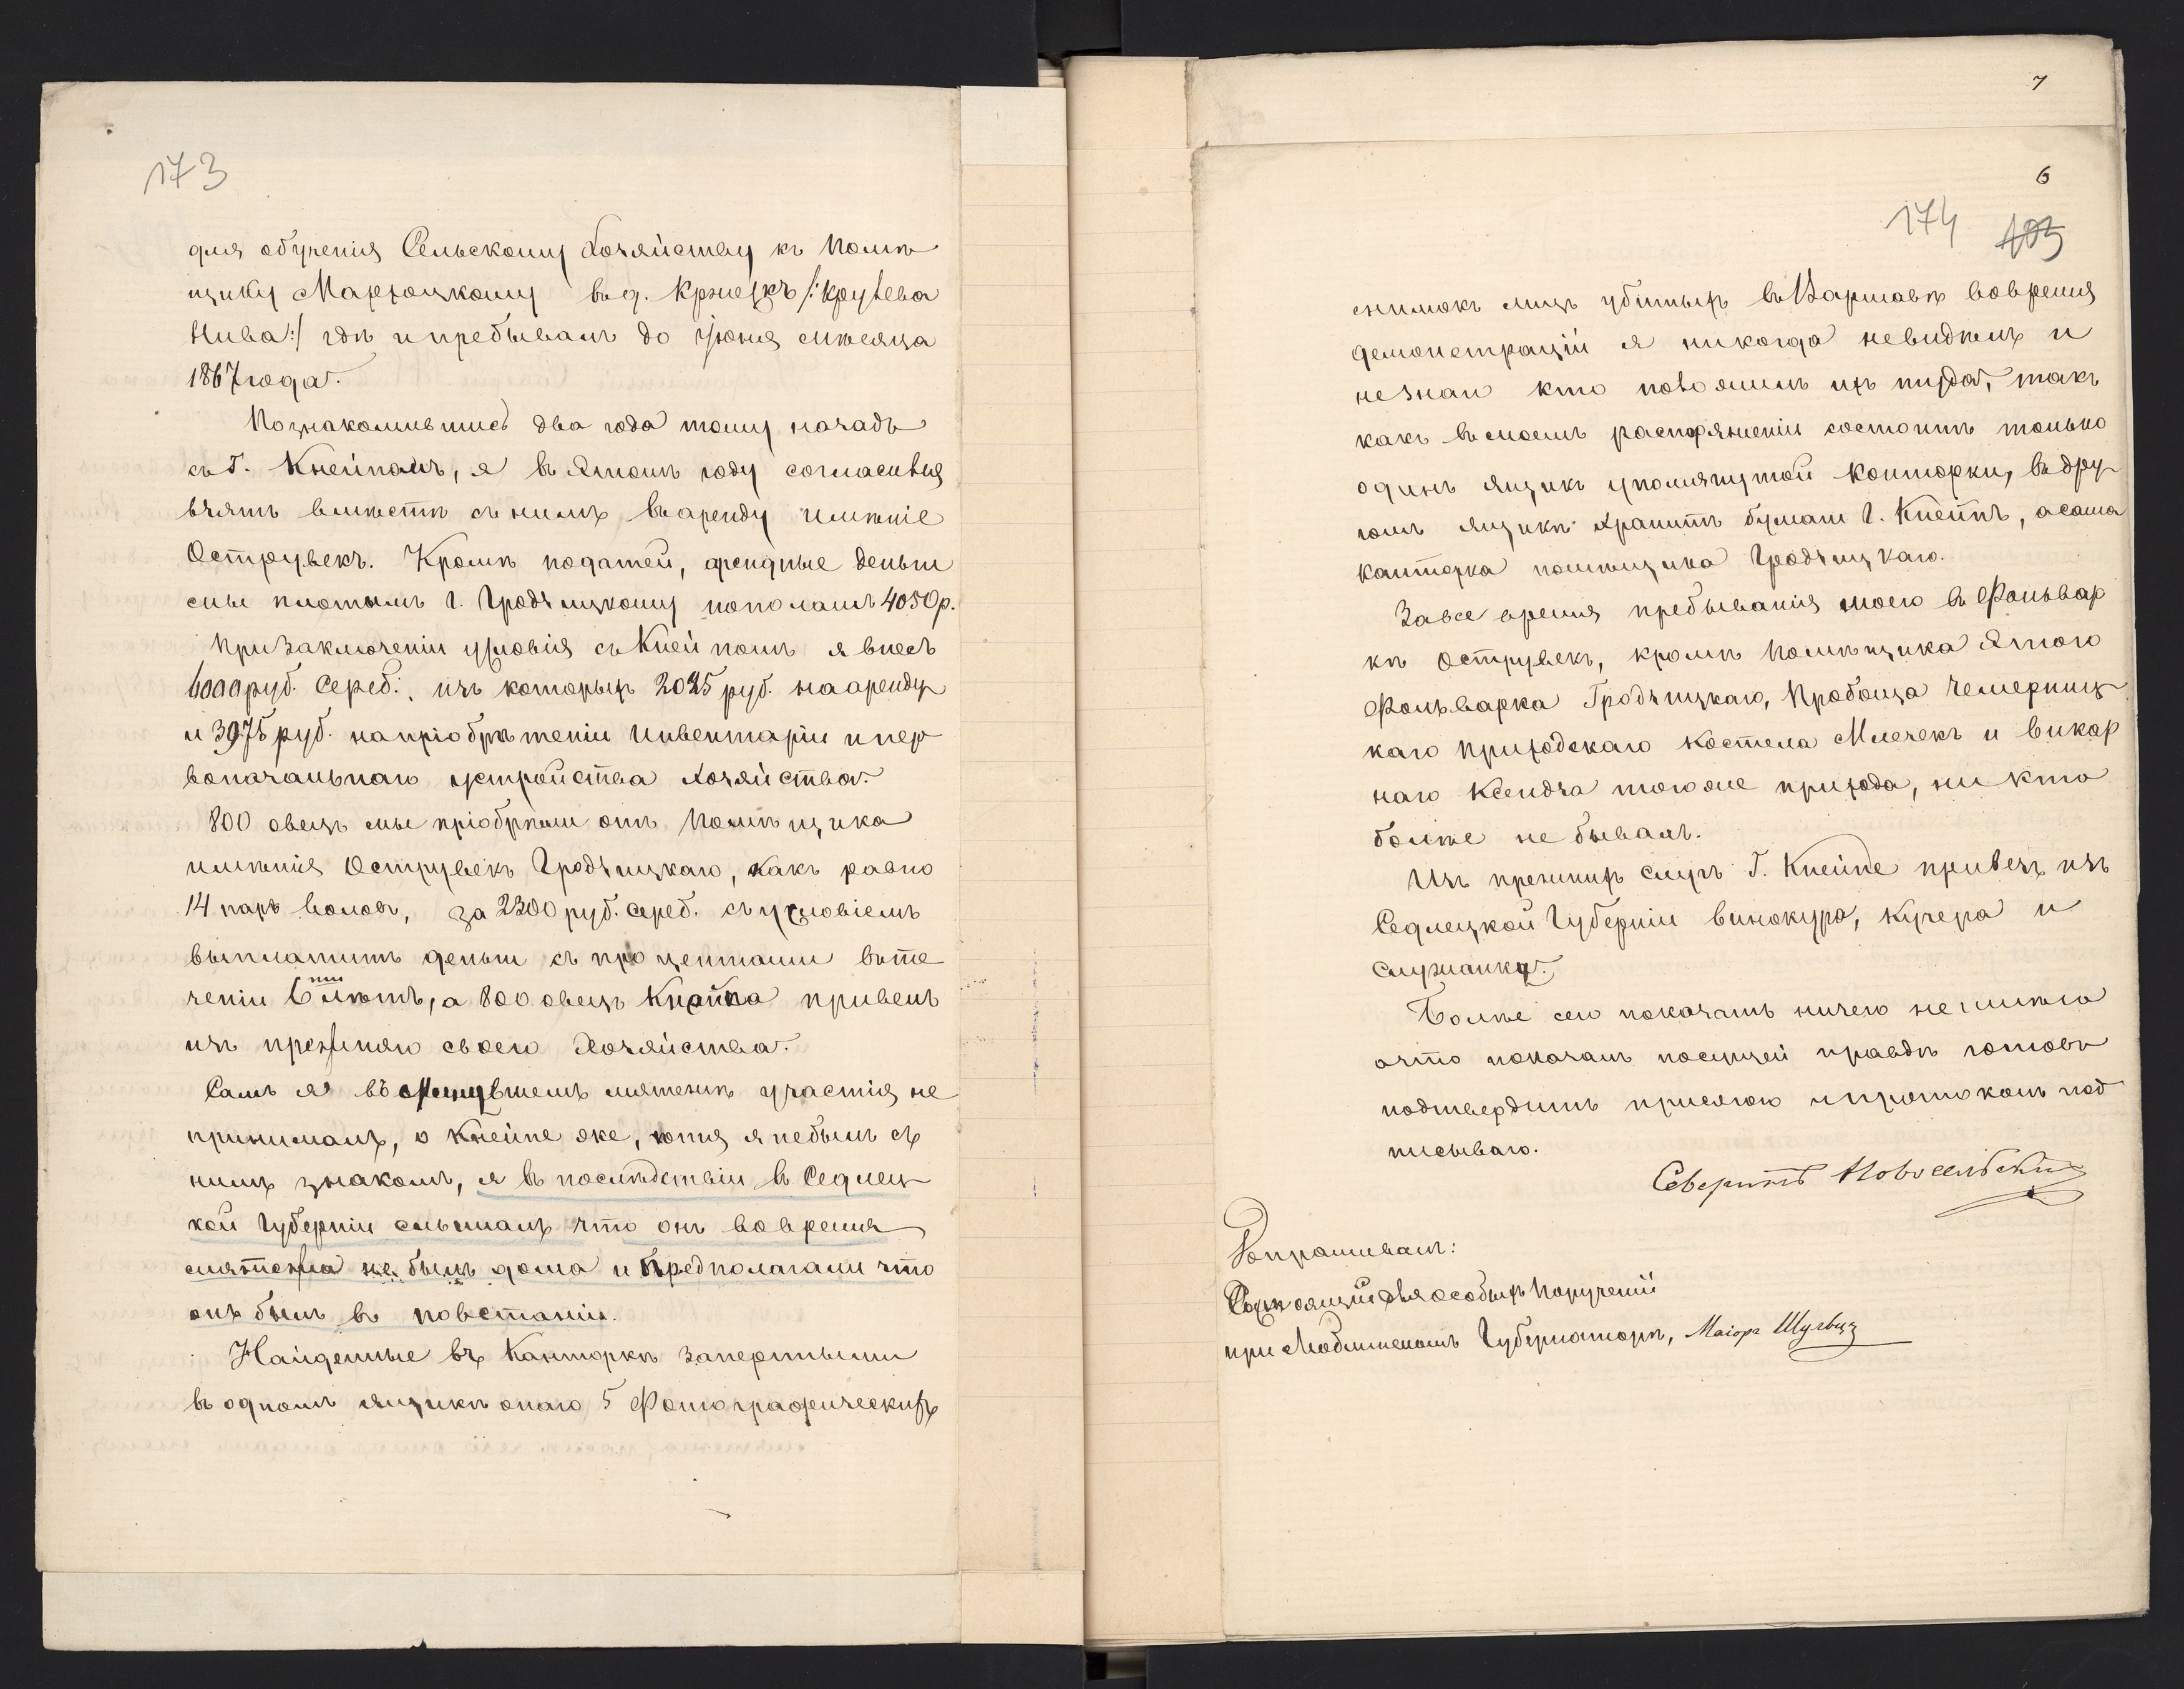 173
для обученія Сельскому Хозяйству къ Помѣ
щику въ д. Кржескъ /: Крулева
Нива :/ гдѣ и пребывалъ до Іюня мѣсяца
1867 года.
Познакомившись два года тому назадъ
съ Г. Кнейпомъ, я въ Этомъ году согласился
взять вмѣстѣ съ нимъ въ аренду имѣніе
Острувекъ. Кромѣ податей, арендные деньги
мы платимъ Г. Гродзицкому пополамъ 4050 р.
При Заключеніи условія съ Кнейпомъ я внесъ
6000 руб. Сереб. изъ которыхъ 2025 руб. на аренду
и 3975 руб. на пріобрѣтеніи Инвентаріи и пер
воначальнаго устройства хозяйства.
800 овецъ мы пріобрѣли отъ Помѣщика
имѣнія Острувекъ Гродзицкаго, какъ равно
14 паръ воловъ, за 2200 руб. сереб. съ условіемъ
выплатить деньги съ процентами въ те
ченіи 6ти лѣтъ, а 800 овецъ Кнейпа привелъ
изъ прежняго своего Хозяйства.
Самъ я въ минувшемъ мятежѣ участія не
принималъ, о Кнейпе же, хотя я не былъ съ
нимъ знакомъ, я въ послѣдствіи въ Седлец
кой Губерніи слышалъ что онъ во время
мятежа не былъ дома и Предполагали что
онъ былъ въ повстаніи.
Найденные въ Канторкѣ Запертыми
въ одномъ ящикѣ онаго 5 Фотографическихъ
7
6
174
снимокъ лицъ убитыхъ въ Варшавѣ во время
демонстрацій я никогда невидѣлъ и
не знаю кто положилъ ихъ туда, такъ
какъ въ моемъ распоряженіи состоитъ только
одинъ ящикъ упомянутой Конторки, въ дру
гомъ ящикѣ хранитъ бумаги Г. Кнейпъ, а сама
канторка помѣщика Гродзицкаго.
За все время пребыванія моего въ Фольвар
кѣ Острувекъ, кромѣ Помѣщика Этого
Фольварка Гродзицкаго, Пробоща Чемерниц
каго приходскаго Костела Млечекъ и викар
наго Ксендза того же прихода, ни кто
болѣе не бывалъ.
Изъ прежнихъ слугъ Г. Кнейпе привезъ изъ
Седлецкой Губерніи винокура, кучера и
служанку.
Болѣе сего показать ничего не имѣю
а что показалъ по сущей правдѣ готовъ
подтвердить присягою и протоколъ под
писываю.
Северинъ Новосельскій
Допрашивалъ:
Состоящій для особыхъ порученій
при Люблинскомъ Губернаторѣ, Маіоръ Шульцъ